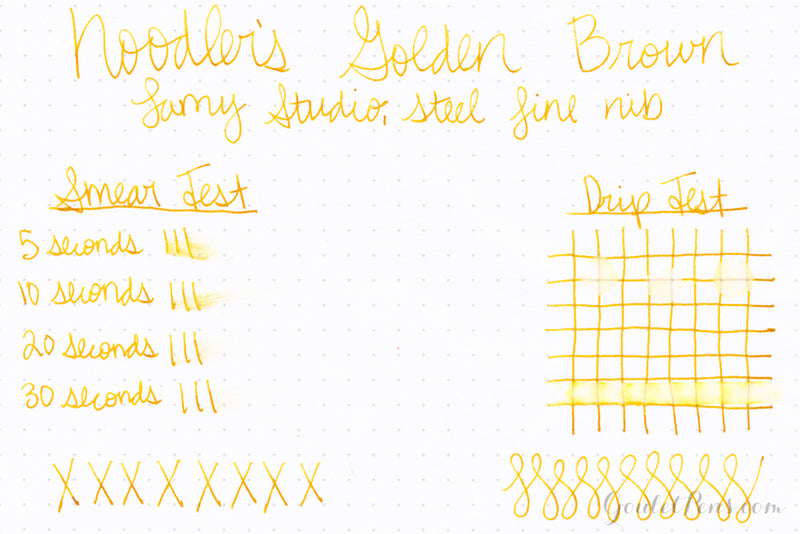 Noodler's Golden Brown
Lamy Studio, steel fine nib
Smear Test
Drip Test
5 seconds
10 seconds
20 seconds
30 seconds
GouletPens.com